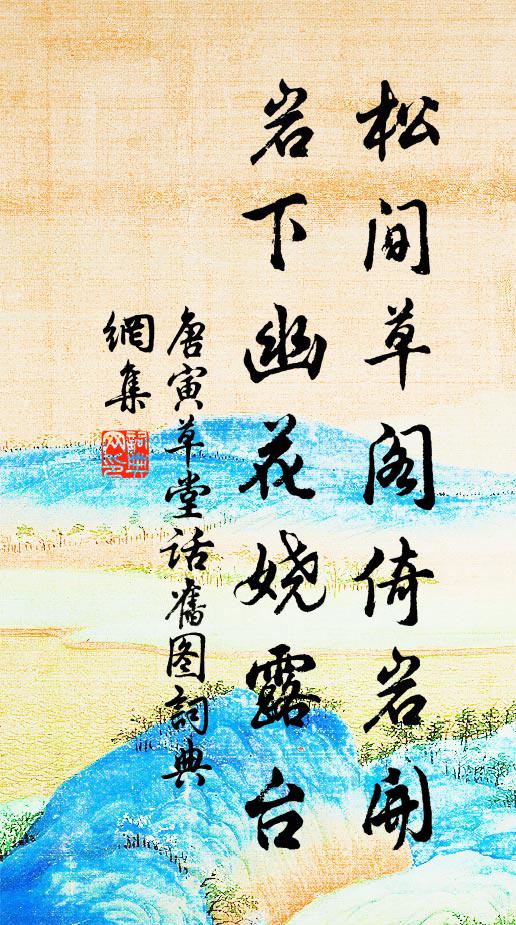 松间草阁倚岩开
岩下幽花娆露台
唐寅草堂话舊图詞典
網集